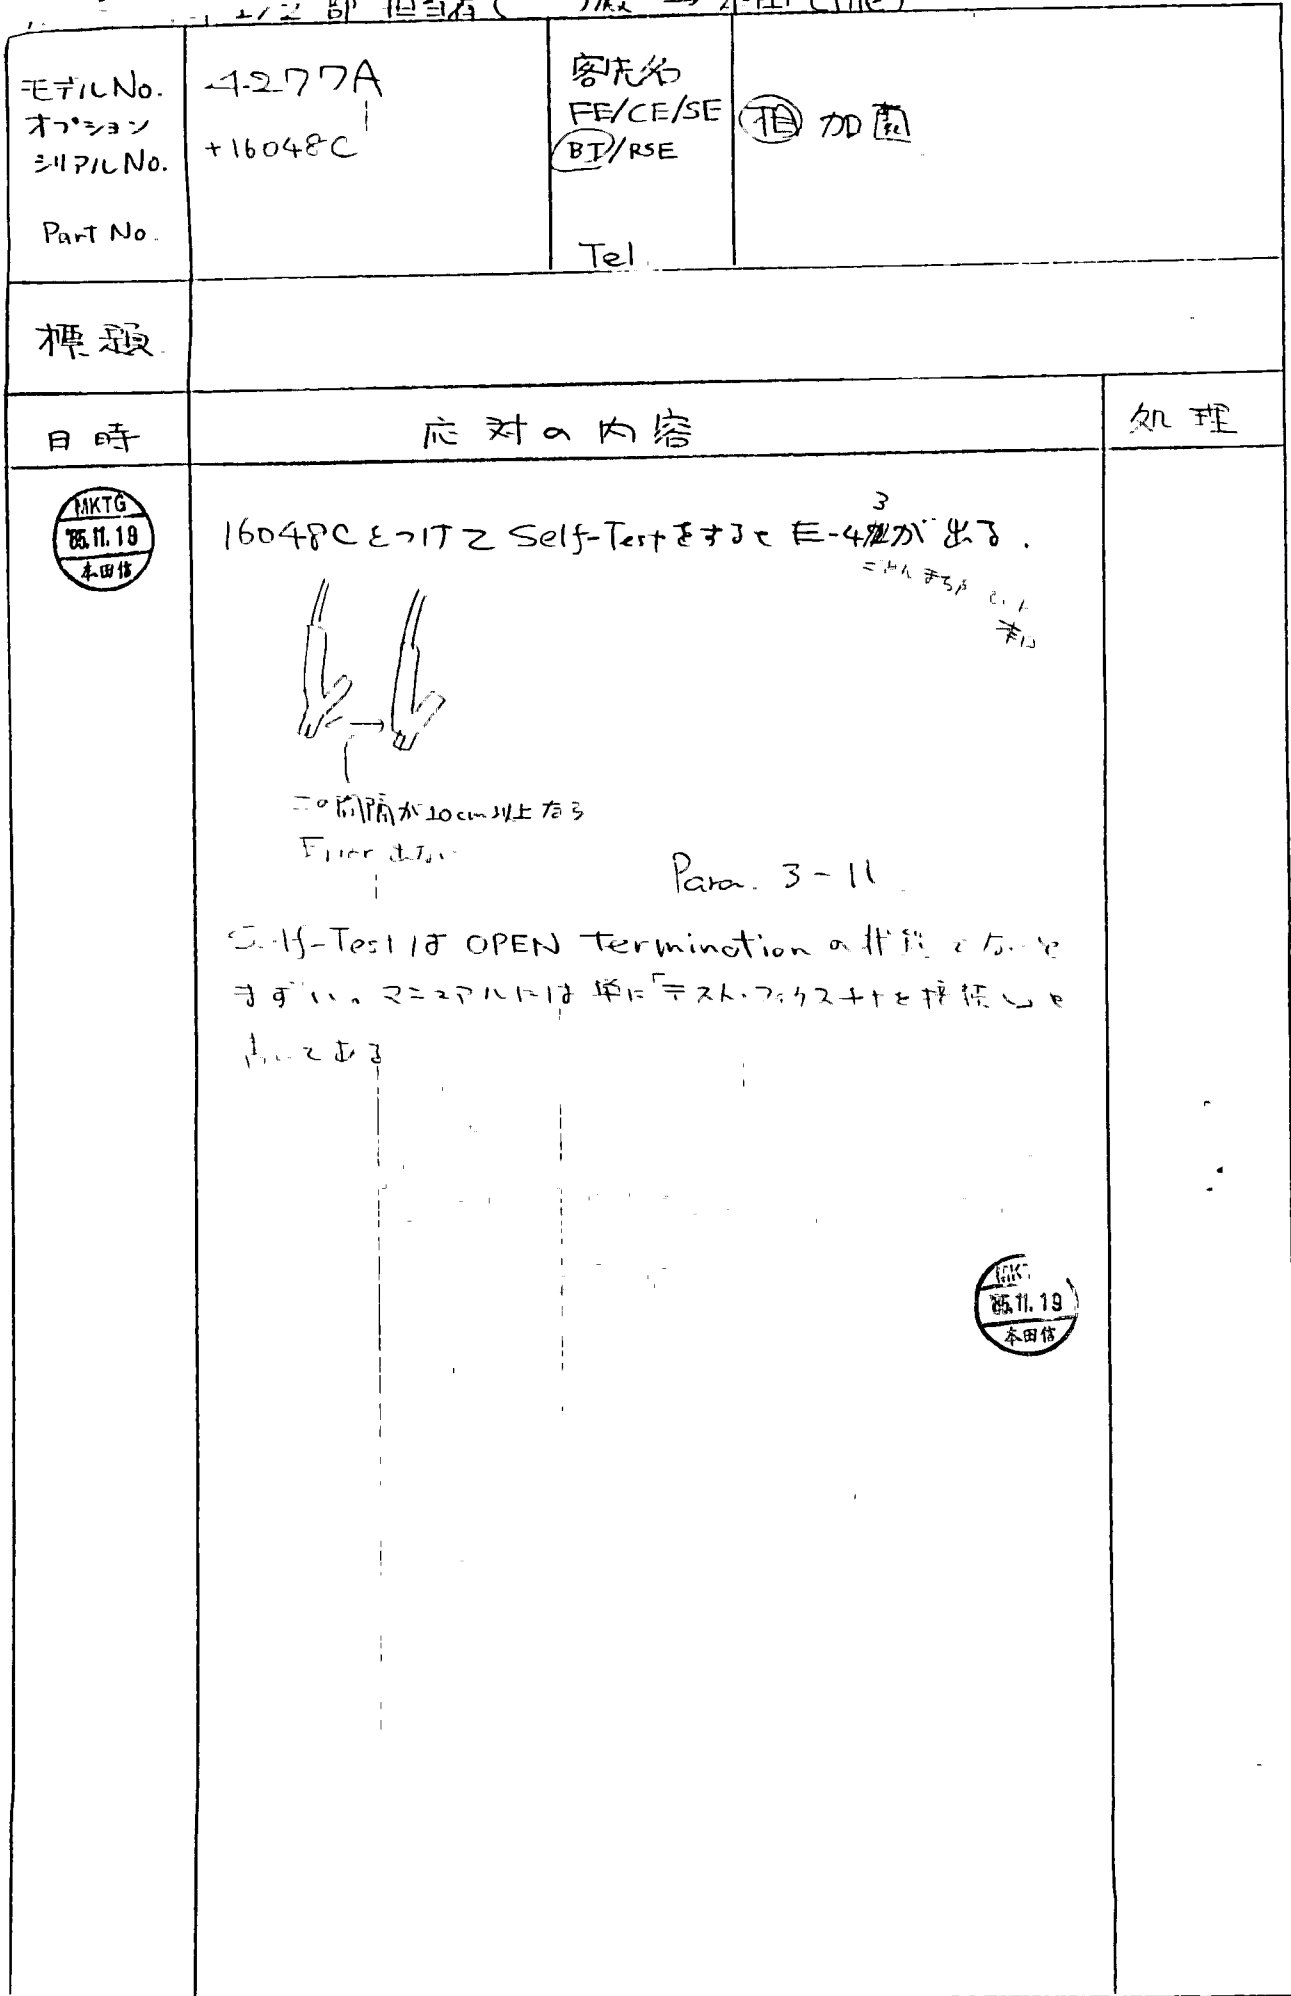 1/2 部 担当者(
モデルNo.
オプション
シリアルNo.
Part No.
4277A
+16048C
客先名
FE/CE/SE
BI/RSE
Tel.
相 加園
標題
日時
応対の内容
処理
MKTG
'85.11.19
本田信
16048CをつけてSelf-Testをすると E-43が出る.
この間隔が10cm以上なら
Error 出ない
Para. 3-11
Self-Testは OPEN terminationの状態でないと
まずい。マニュアルには単に「テスト・フィクスチャを接続」と
書いてある
MKT
'85.11.19
本田信